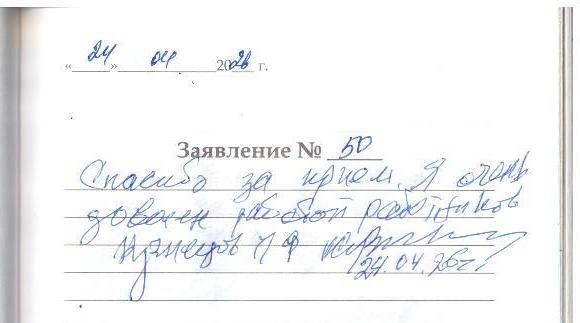 «24» 04 2026 г.
Заявление № 50
Спасибо за прием. Я очень
доволен работой работников
Кузнецов П Ф
24.04.26 г.